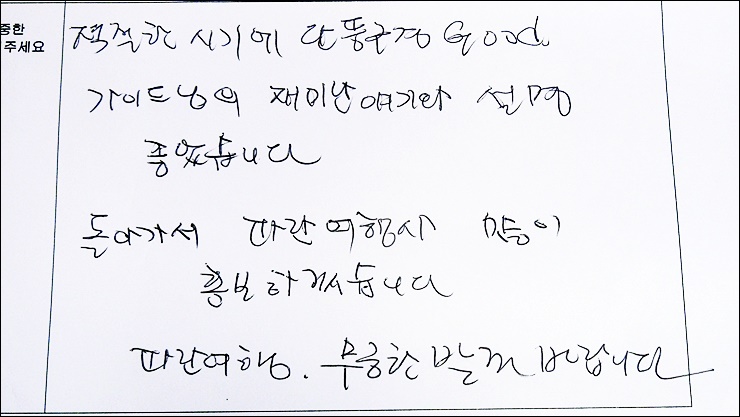 중한
주세요
적절한 시기에 단풍구경 Good.
가이드님의 재미난 얘기와 설명
좋았습니다
돌아가서 파란여행사 많이
홍보하겠습니다
파란여행. 무궁한 발전 바랍니다